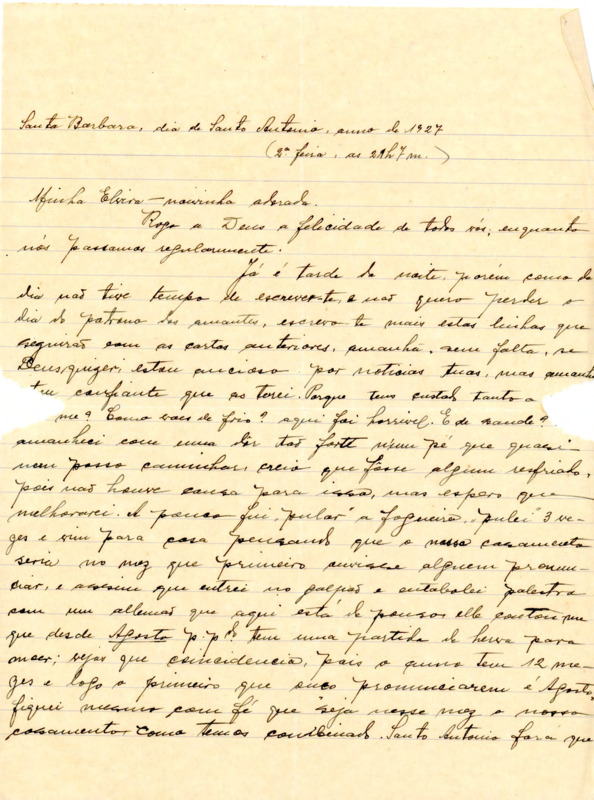 Santa Barbara, dia de Santo Antonio, anno de 1927
(2ª feira, as 21h 7 m.)
Minha Elvira - noivinha adorada.
Rogo a Deus a felicidade de todos vós, enquanto
nós passamos regularmente.
Já é tarde da noite, porém como de
dia não tive tempo de escrever-te, e não quero perder o
dia do patrono dos amantes, escrevo-te mais estas linhas que
seguirão com as cartas anteriores, amanhã, sem falta, se
Deus quizer; estou ancioso por noticias tuas, mas amanhã
confiante que as terei. Porque tens custado tanto a
me? Como vaes de frio? aqui foi horrivel. E de saude?
amanheci com uma dôr tão forte n'um pé que quasi
nem posso caminhar, creio que fosse algum resfriado,
pois não houve causa para isso, mas espero que
melhorarei. A pouco fui "pular" a fogueira, "pulei" 3 ve-
zes e vim para casa pensando que o nosso casamento
seria no mez que primeiro ouvisse alguem pronun-
ciar, e assim que entrei no galpão e entabolei palestra
com um allemão que aqui está de pouso, elle contou-me
que desde Agosto p.p. tem uma partida de herva para
moer; vejas que coincidencia, pois o anno tem 12 me-
zes e logo o primeiro que ouço pronunciarem é Agosto,
fiquei mesmo com fé que seja nesse mez o nosso
casamento, como temos combinado. Santo Antonio fará que